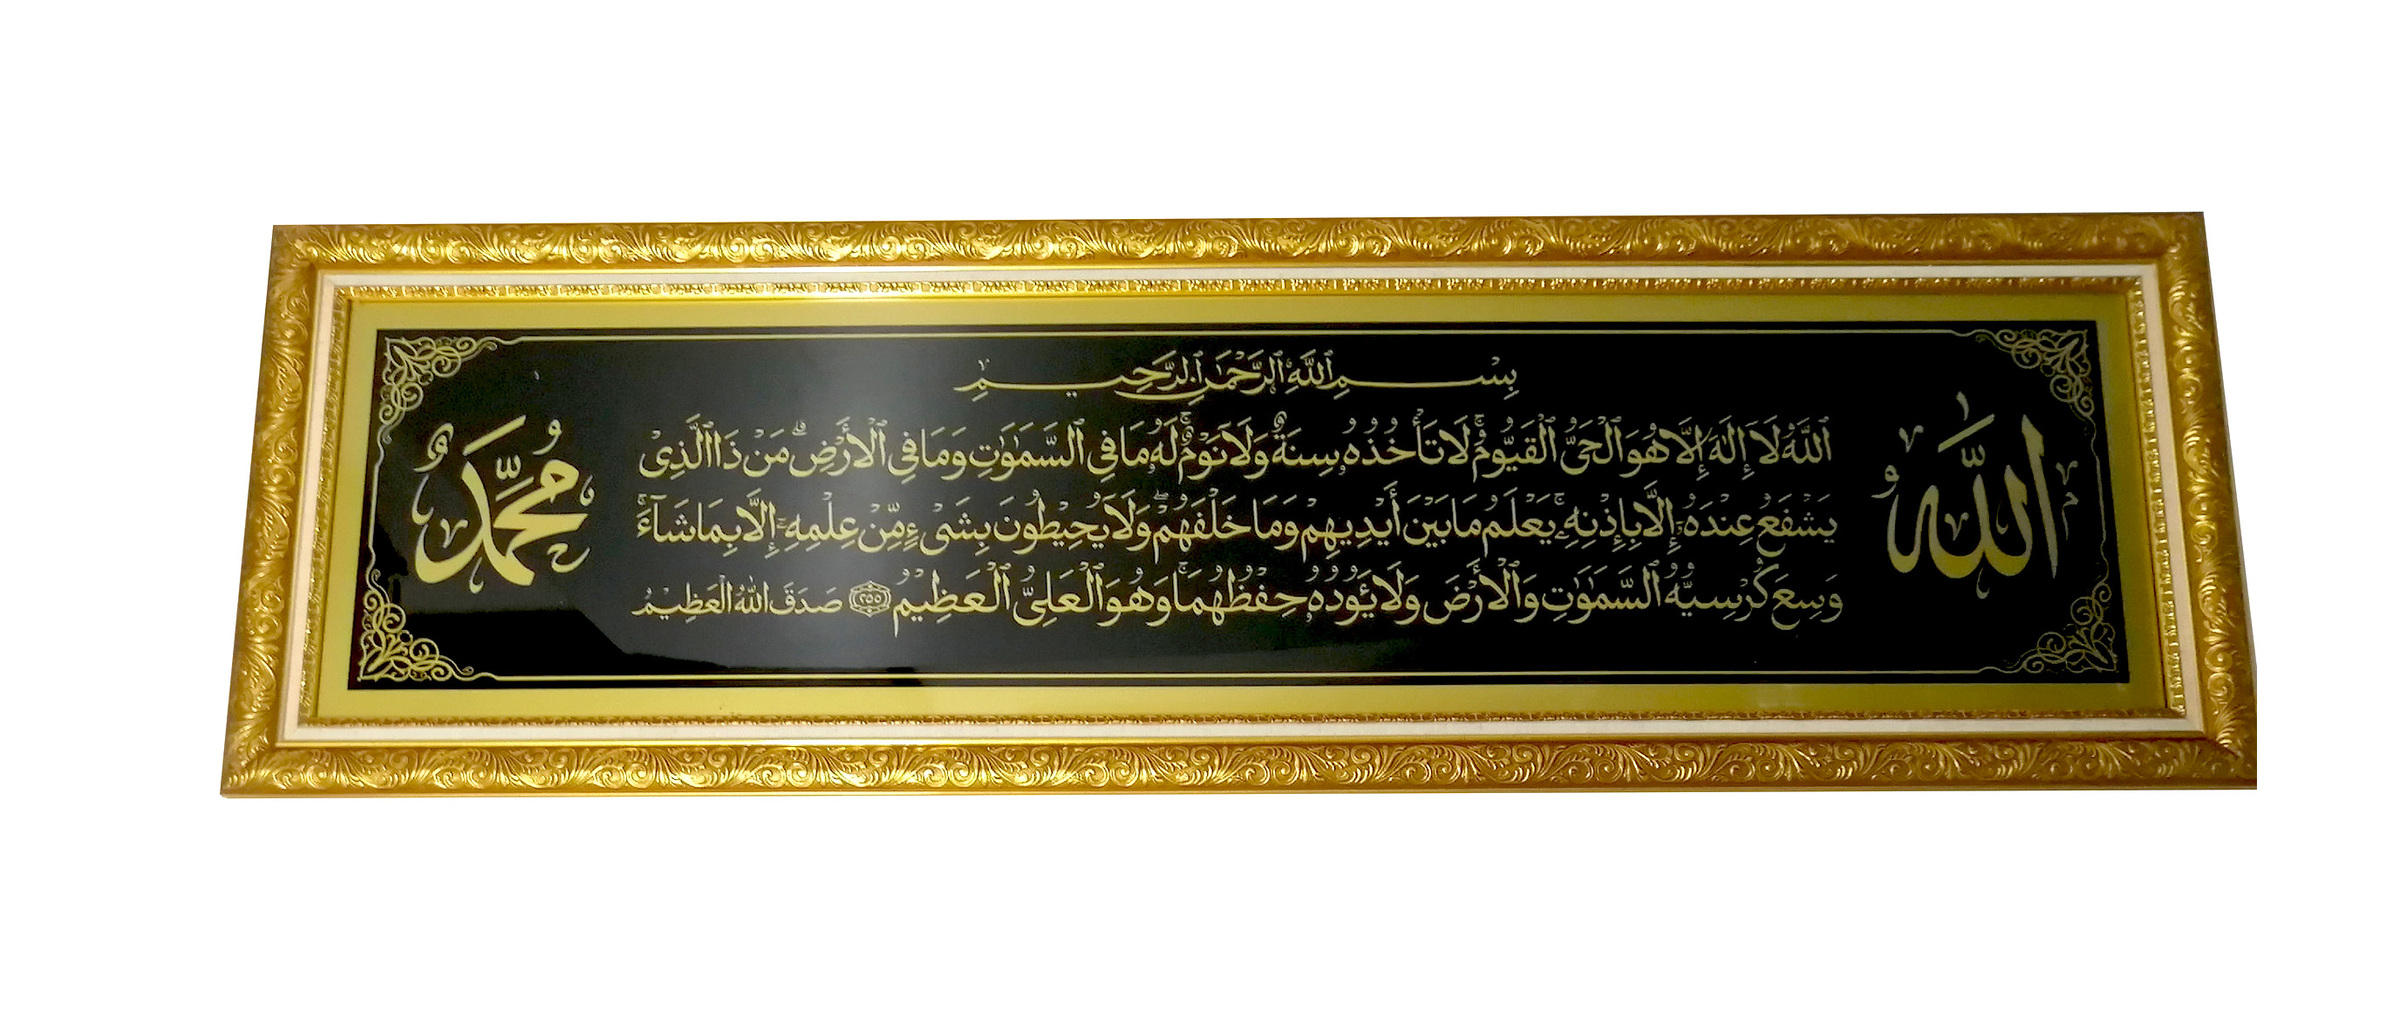 بِسْمِ ٱللَّهِ ٱلرَّحْمَٰنِ ٱلرَّحِيمِ
ٱللَّهُ
ٱللَّهُ لَا إِلَٰهَ إِلَّا هُوَ ٱلْحَىُّ ٱلْقَيُّومُ ۚ لَا تَأْخُذُهُۥ سِنَةٌ وَلَا نَوْمٌ ۚ لَهُۥ مَا فِى ٱلسَّمَٰوَٰتِ وَمَا فِى ٱلْأَرْضِ ۗ مَنْ ذَا ٱلَّذِى
يَشْفَعُ عِنْدَهُۥ إِلَّا بِإِذْنِهِۦ ۚ يَعْلَمُ مَا بَيْنَ أَيْدِيهِمْ وَمَا خَلْفَهُمْ ۖ وَلَا يُحِيْطُونَ بِشَىْءٍ مِّنْ عِلْمِهِۦ إِلَّا بِمَا شَآءَ ۚ
وَسِعَ كُرْسِيُّهُ ٱلسَّمَٰوَٰتِ وَٱلْأَرْضَ وَلَا يَـُٔودُهُۥ حِفْظُهُمَا ۚ وَهُوَ ٱلْعَلِىُّ ٱلْعَظِيْمُ ٢٥٥ صَدَقَ اللهُ الْعَظِيْمُ
مُحَمَّدٌ